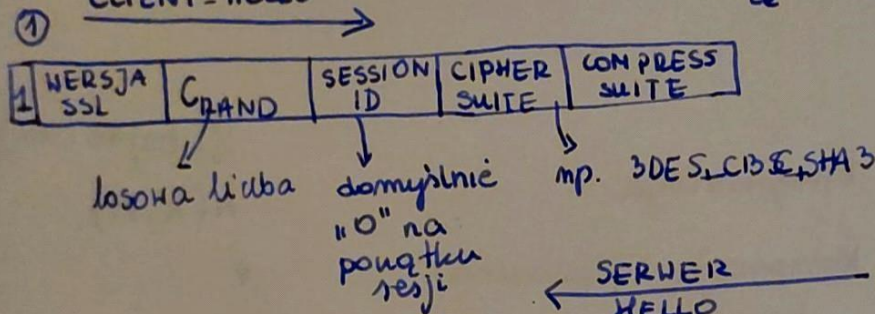 ①
1 WERSJA SSL | CRAND | SESSION ID | CIPHER SUITE | COMPRESS SUITE
losowa liczba
domyślnie
"0" na
początku
sesji
np. 3DES_CBC_SHA3
SERWER
HELLO